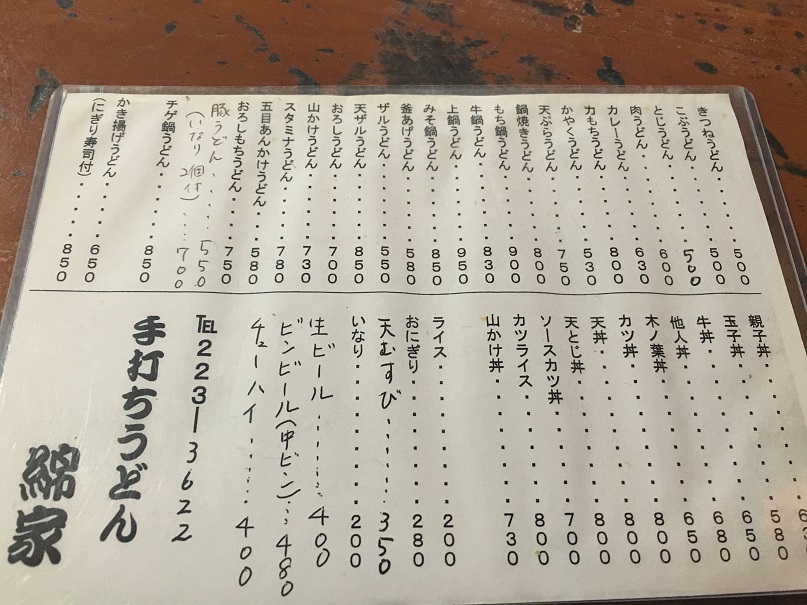 きつねうどん・・・・・500
こぶうどん・・・・・500
とじうどん・・・・・500
肉うどん・・・・・600
カレーうどん・・・・・630
力もちうどん・・・・・800
かやくうどん・・・・・530
天ぷらうどん・・・・・750
鍋焼きうどん・・・・・800
もち鍋うどん・・・・・900
牛鍋うどん・・・・・830
上鍋うどん・・・・・950
みそ鍋うどん・・・・・850
釜あげうどん・・・・・580
ザルうどん・・・・・550
天ザルうどん・・・・・850
おろしうどん・・・・・700
山かけうどん・・・・・730
スタミナうどん・・・・・780
五目あんかけうどん・・・・580
おろしもちうどん・・・・750
豚うどん・・・・・550
(いなり2個付)・・・・700
チゲ鍋うどん・・・・・850
かき揚げうどん・・・・・650
(にぎり寿司付)・・・・・850
親子丼・・・・・・・630
玉子丼・・・・・・・580
牛丼・・・・・・・650
他人丼・・・・・・・680
木ノ葉丼・・・・・・・650
カツ丼・・・・・・・800
天丼・・・・・・・800
天とじ丼・・・・・・・800
ソースカツ丼・・・・・700
カツライス・・・・・・800
山かけ丼・・・・・・730
ライス・・・・・・・200
おにぎり・・・・・・280
天むすび・・・・・・350
いなり・・・・・・・200
生ビール・・・・・・400
ビンビール(中ビン)・・・480
チューハイ・・・・・400
TEL223ー3622
手打ちうどん
綿家